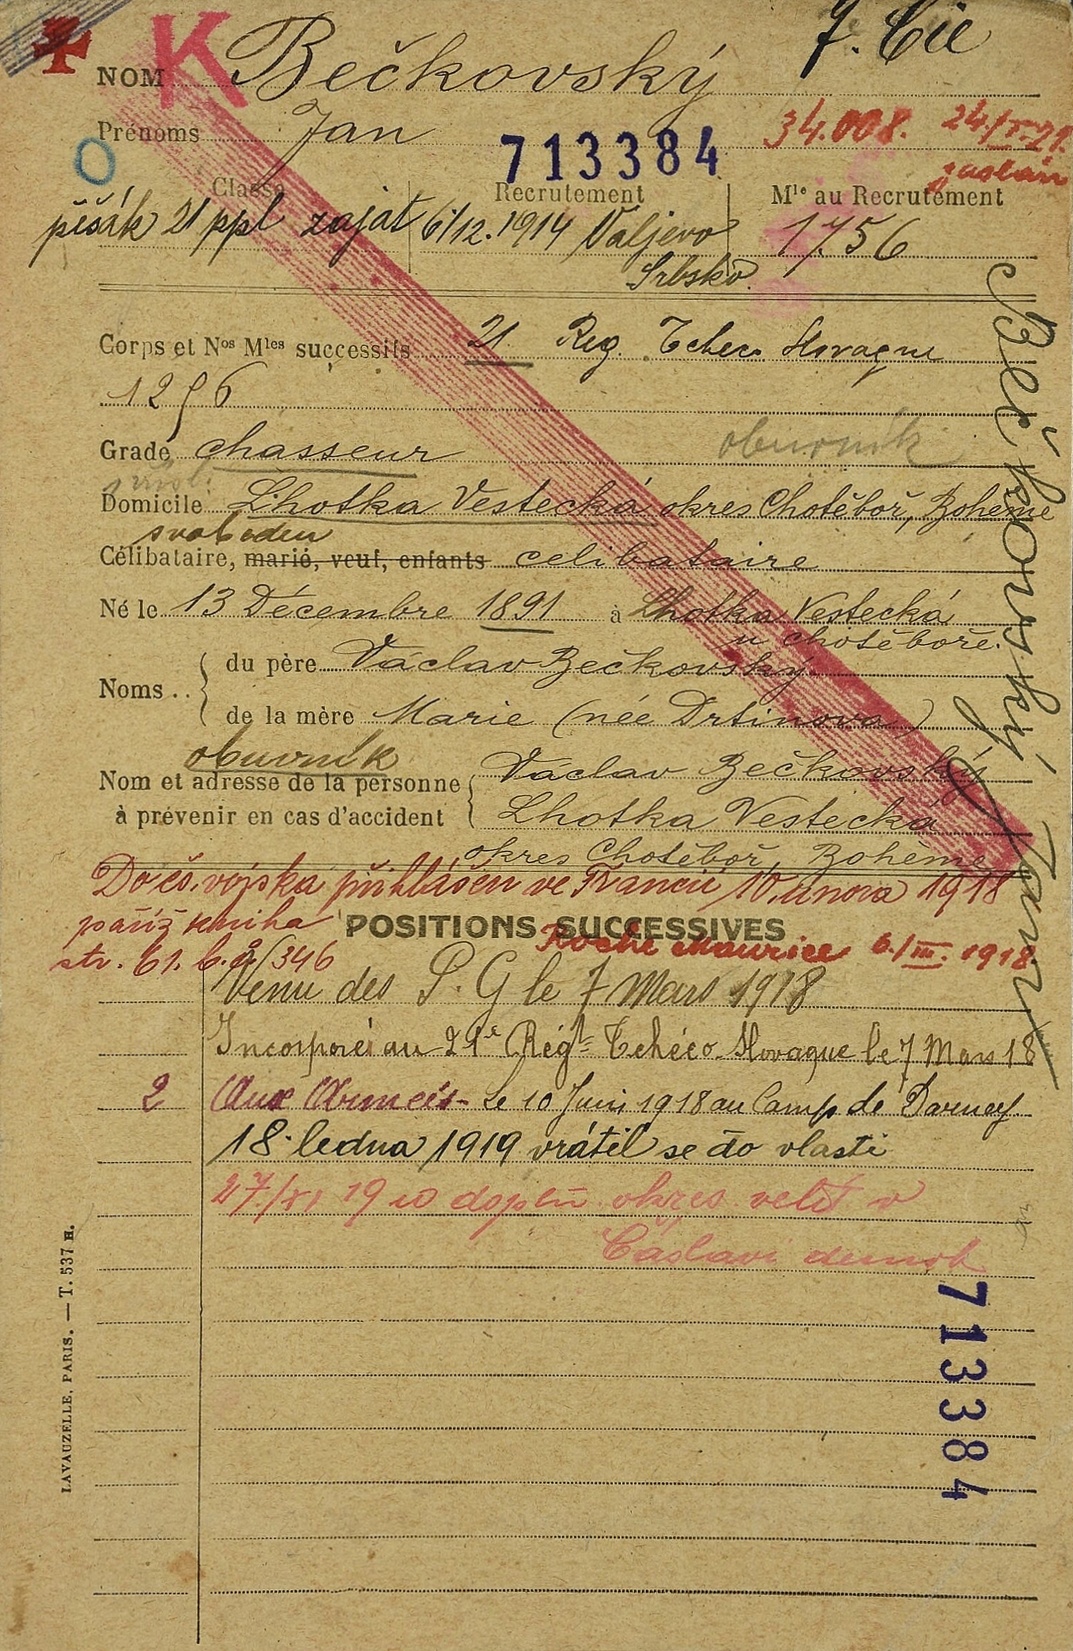 7. Cie
K
NOM Bečkovský
Prénoms Jan
713384
34.008. 24./X.21.
zaslán
Classe Recrutement Mle au Recrutement
pěšák 21 ppl zajat 6/12.1914 Valjevo 1756
Srbsko.
Corps et Nos Mles successifs 21. Reg. Tcheco Slovaque
1256
Grade chasseur obuvník
Domicile Lhotka Vestecká okres Chotěboř, Bohême
svoboden
Célibataire, marié, veuf, enfants celibataire
Né le 13 Décembre 1891 à Lhotka Vestecká
u Chotěboře.
Noms .. du père Václav Bečkovský
de la mère Marie (née Drtinova)
obuvník
Nom et adresse de la personne à prévenir en cas d'accident Václav Bečkovský
Lhotka Vestecká
okres Chotěboř, Bohême
Do čs. vojska přihlášen ve Francii 10. února 1918
paříž kniha
POSITIONS SUCCESSIVES
Roche Maurice 6./III. 1918.
str. 61. b. č./346
Venu des P. G le 7 Mars 1918
Incorporé au 21e Régt Tchéco-Slovaque le 7 Mars 18
2 Aux Armées - Le 10 Juin 1918 au Camp de Darney
18. ledna 1919 vrátil se do vlasti
27/XI 1920 doplň okres velit v
Čáslavi demob
Bečkovský Jan
713384
LAVAUZELLE, PARIS. — T. 537 H.